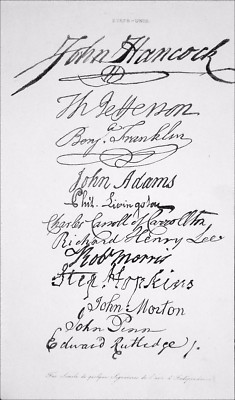 John Hancock
Th Jefferson
Benj. Franklin
John Adams
Phil. Livingston
Charles Carroll of Carrollton
Richard Henry Lee
Rob Morris
Step. Hopkins
John Morton
John Penn
Edward Rutledge /.